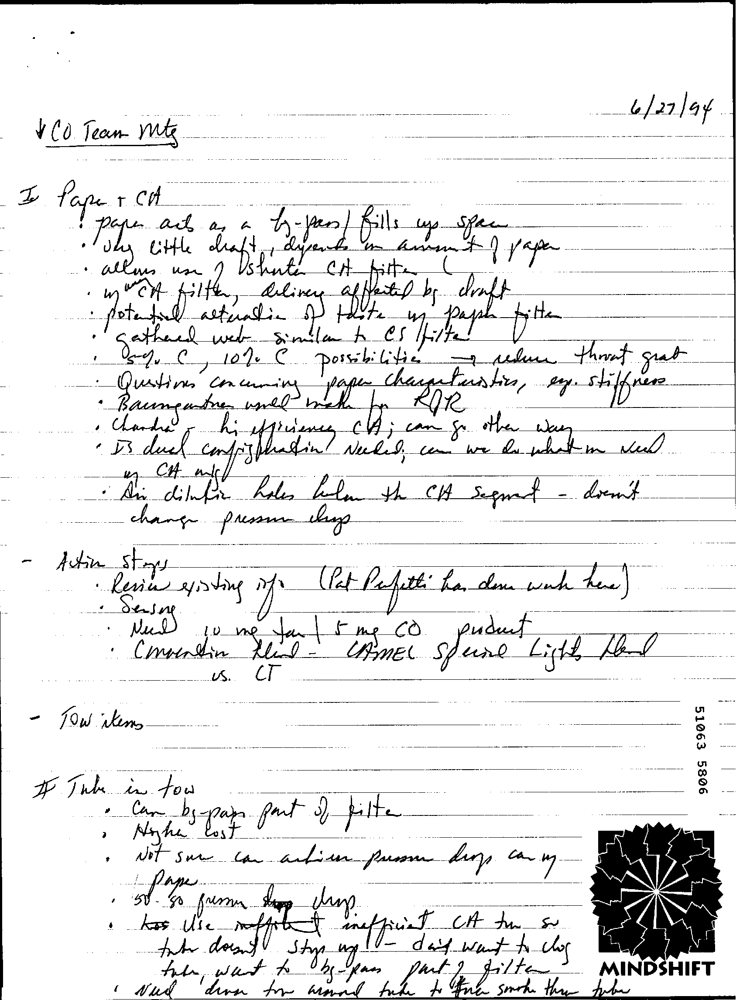 6/27/94
↓ CO Team Mtg
I Paper + CA
· paper acts as a by-pass / fills up space
· Very little draft, depends on amount of paper
· allows use of shorter CA filter
· w/ CA filter, delivery affected by draft
· potential alteration of taste w/ paper filter
· gathered web similar to CS filter
· 5% C, 10% C possibilities → reduce throat grab
· Questions concerning paper characteristics, eg. stiffness
· Baumgartner would make for RJR
· Chandra - hi efficiency CA; can go other way
· Is dual configuration needed; can we do what we need
w/ CA only
· Air dilution holes below the CA segment - doesn't
change pressure drop
- Action Steps
· Review existing info (Pat Perfetti has done work here)
· Sensory
· Need 10 mg tar / 5 mg CO product
· Convention blend - CAMEL Special Lights blend
vs. CT
- Tow items
II Tube in tow
· Can by-pass part of filter
· Higher cost
· Not sure can achieve pressure drops can w/
paper
· 50-80 pressure drop
· Use inefficient CA tow so
tube doesn't stop up - don't want to clog
tube, want to by-pass part of filter
· Need dense tow around tube to force smoke thru tube
51063 5806
MINDSHIFT